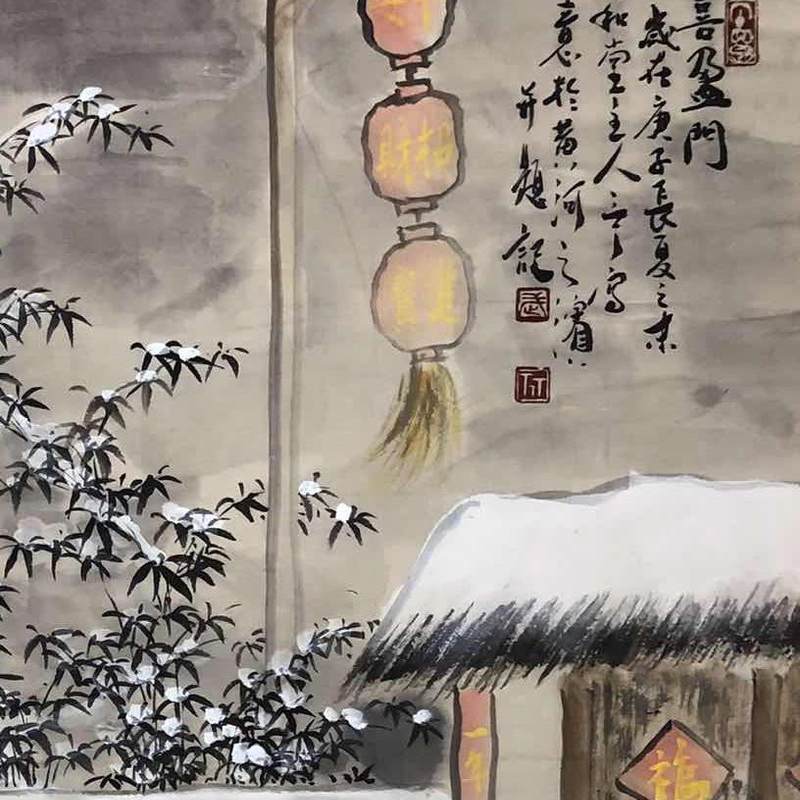 喜盈門
歲在庚子長夏之末
和堂主人
寫
意於黄河之濱
并題記
招財
一年
福